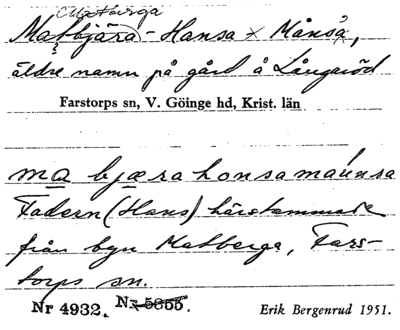 Matberga
Matbjära-Hansa x Månsa,
äldre namn på gård å Långaröd
Farstorps sn, V. Göinge hd, Krist. län
ma bjæra hansa maúnsa
Fadern (Hans) härstammade
från byn Matberga, Fars-
torps sn.
Nr 4932. Nr 5855.
Erik Bergenrud 1951.